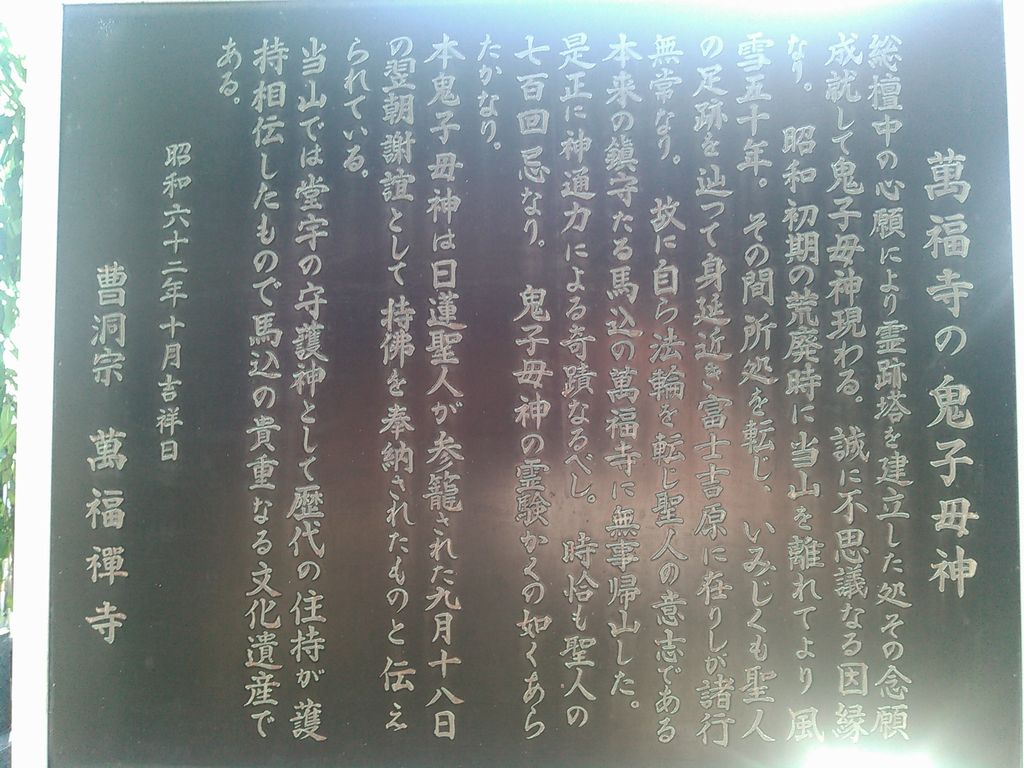 萬福寺の鬼子母神
総檀中の心願により霊跡塔を建立した処その念願
成就して鬼子母神現わる。誠に不思議なる因縁
なり。　昭和初期の荒廃時に当山を離れてより風
雪五十年。その間所処を転じ、いみじくも聖人
の足跡を辿って身延近き富士吉原に在りしが諸行
無常なり。故に自ら法輪を転じ聖人の意志である
本来の鎮守たる馬込の萬福寺に無事帰山した。
是正に神通力による奇蹟なるべし。時恰も聖人の
七百回忌なり。　鬼子母神の霊験かくの如くあら
たかなり。
本鬼子母神は日蓮聖人が参籠された九月十八日
の翌朝謝誼として持佛を奉納されたものと伝え
られている。
当山では堂宇の守護神として歴代の住持が護
持相伝したもので馬込の貴重なる文化遺産で
ある。
昭和六十二年十月吉祥日
曹洞宗　萬福禅寺